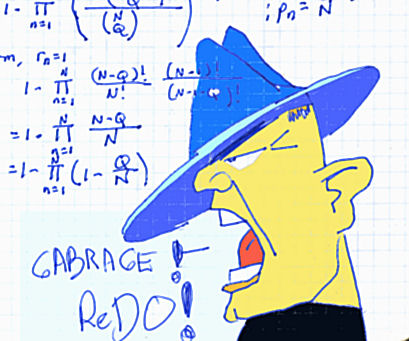 1 - ∏ n=1 ( (N Q) ) ; Pn = N
m, rn=1
1 - ∏ N n=1 (N-Q)! / N! (N-1)! / (N-1-Q)!
= 1 - ∏ N n=1 N-Q / N
= 1 - ∏ N n=1 (1 - Q/N)
GABRAGE !
ReDO!